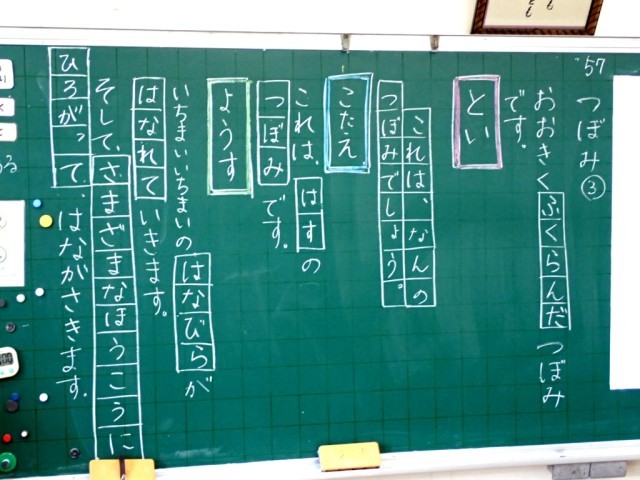 57
つぼみ③
おおきくふくらんだつぼみ
です。
とい
これは、なんの
つぼみでしょう。
こたえ
これは、はすの
つぼみです。
ようす
いちまいいちまいのはなびらが
はなれていきます。
そして、さまざまなほうこうに
ひろがって、はながさきます。